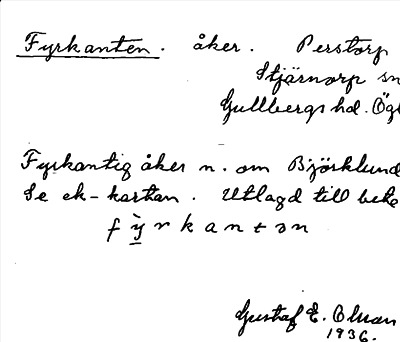 Fyrkanten. åker. Perstorp
Stjärnorp sn
Gullbergs hd. Ögl
Fyrkantig åker n. om Björklund
Se ek-kartan. Utlagd till bete
fy̠̌rkantən
Gustaf E. Olsson
1936.